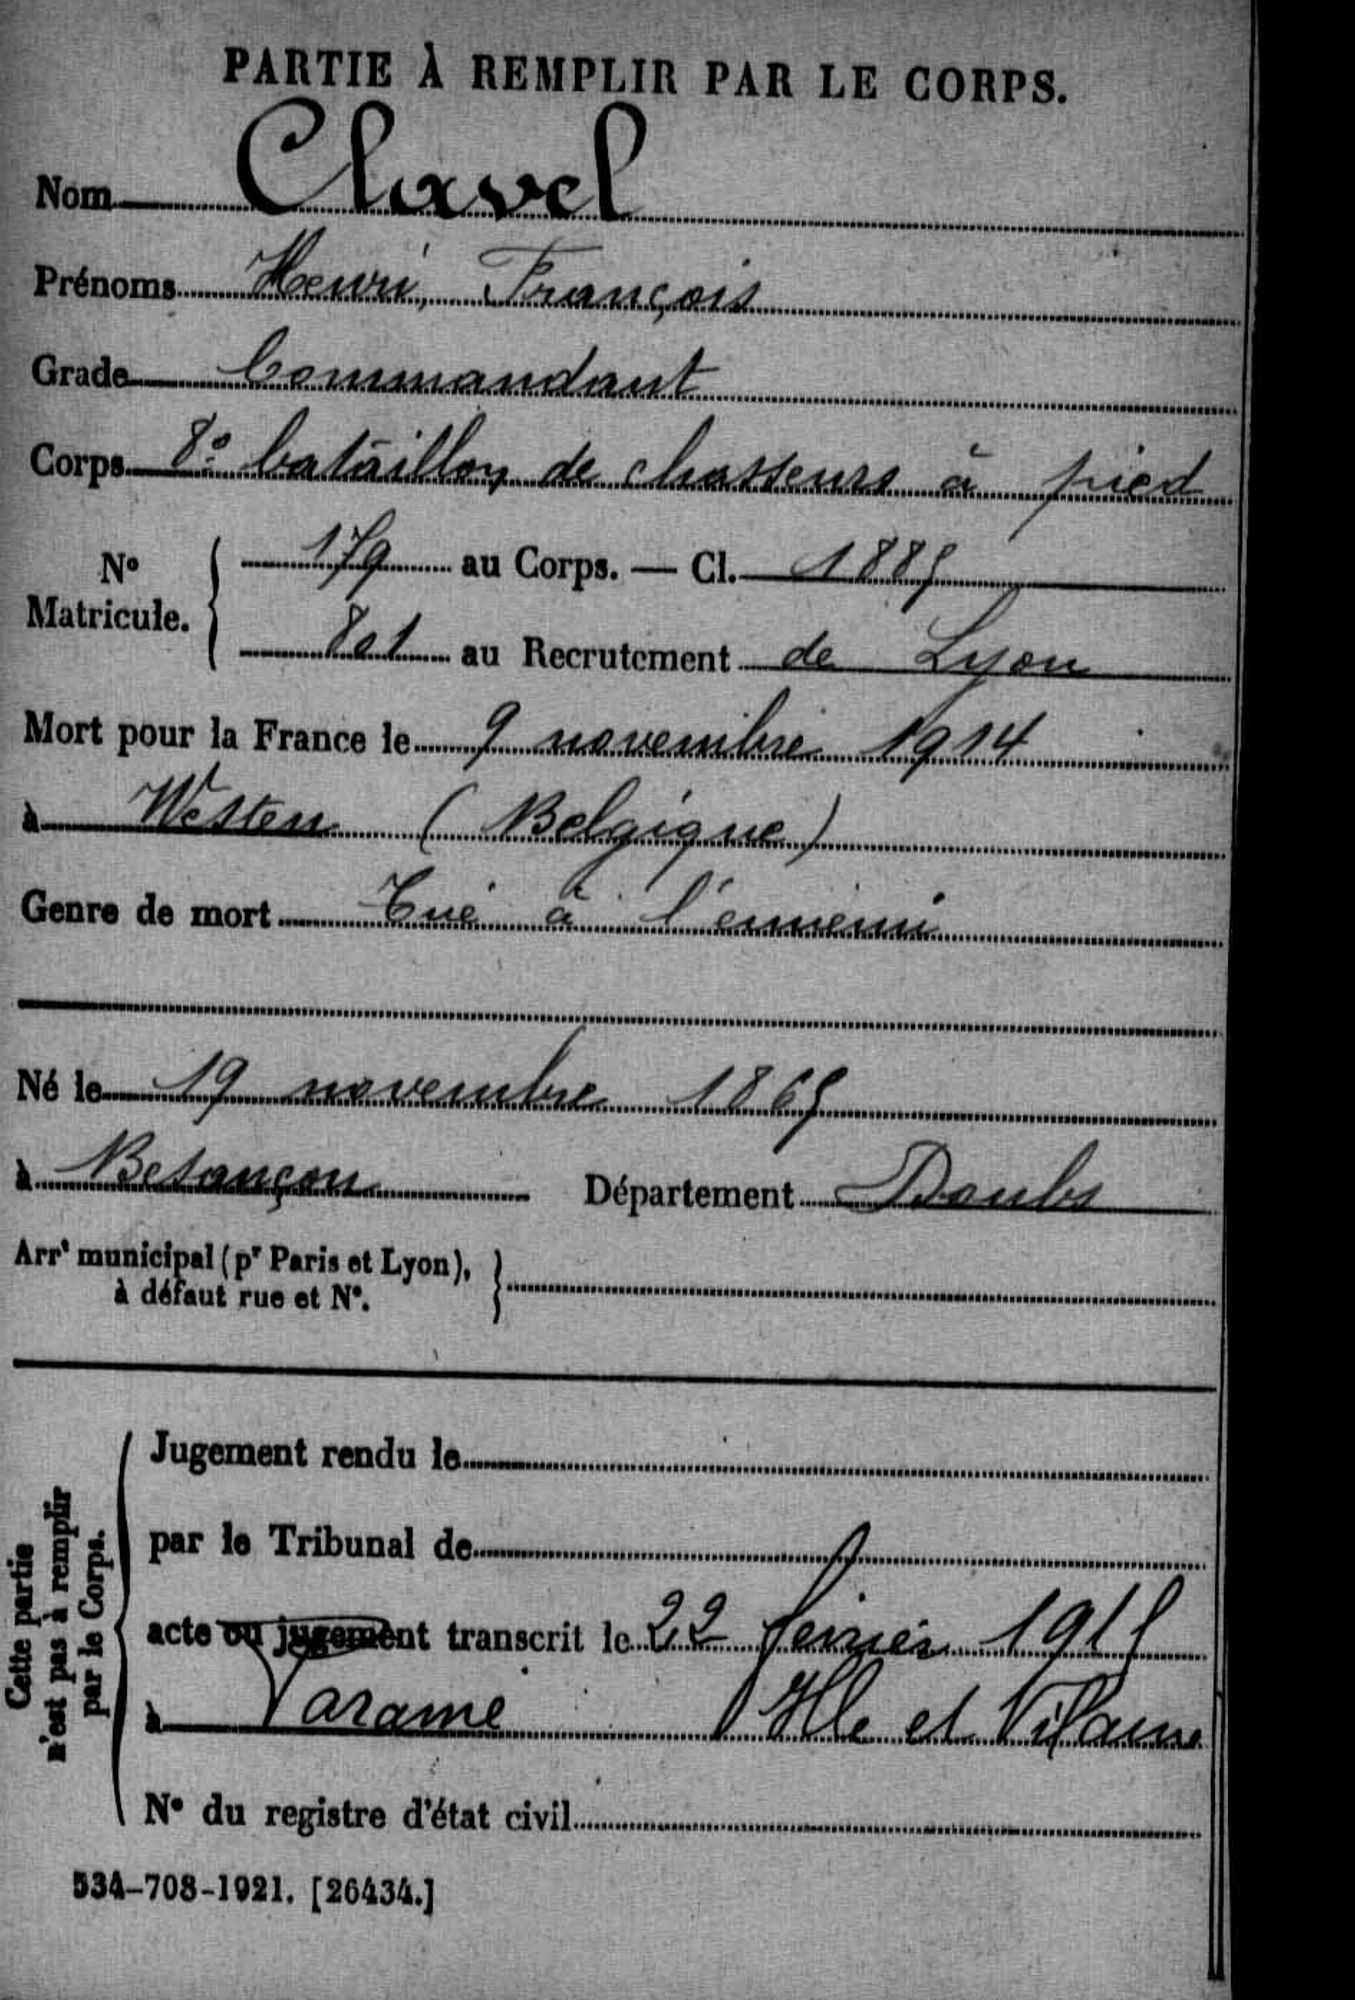 PARTIE À REMPLIR PAR LE CORPS.
Nom Clavel
Prénoms Henri, François
Grade Commandant
Corps 8e bataillon de chasseurs à pied
No Matricule. { 179 au Corps. — Cl. 1885
801 au Recrutement de Lyon
Mort pour la France le 9 novembre 1914
à Westen (Belgique)
Genre de mort Tué à l'ennemi
Né le 19 novembre 1865
à Besançon Département Doubs
Arrt municipal (pr Paris et Lyon), }
à défaut rue et No.
Cette partie
n'est pas à remplir
par le Corps.
Jugement rendu le
par le Tribunal de
acte ou jugement transcrit le 22 février 1915
à Paramé Ille et Vilaine
No du registre d'état civil
534-708-1921. [26434.]